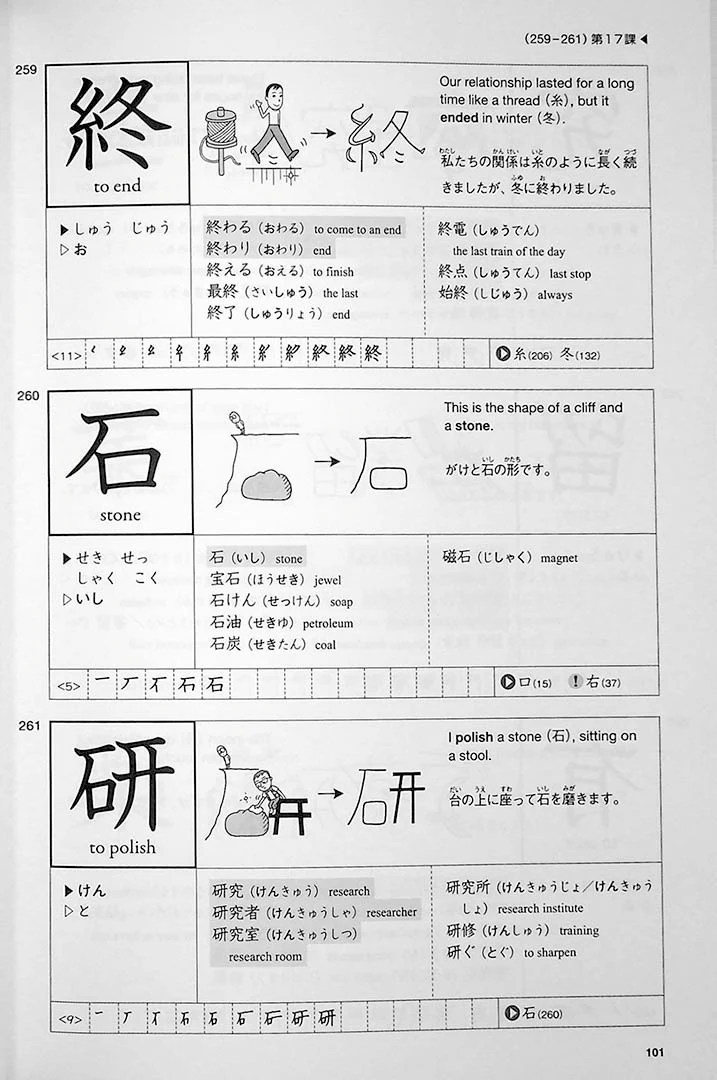 (259-261) 第17課◀
259
終
to end
Our relationship lasted for a long
time like a thread (糸), but it
ended in winter (冬).
私たちの関係は糸のように長く続
きましたが、冬に終わりました。
▶しゅう じゅう
▷お
終わる (おわる) to come to an end
終わり (おわり) end
終える (おえる) to finish
最終 (さいしゅう) the last
終了 (しゅうりょう) end
終電 (しゅうでん)
the last train of the day
終点 (しゅうてん) last stop
始終 (しじゅう) always
<11>
糸(206) 冬(132)
260
石
stone
This is the shape of a cliff and
a stone.
がけと石の形です。
▶せき せっ
しゃく こく
▷いし
石 (いし) stone
宝石 (ほうせき) jewel
石けん (せっけん) soap
石油 (せきゆ) petroleum
石炭 (せきたん) coal
磁石 (じしゃく) magnet
<5>
口(15) ! 右(37)
261
研
to polish
I polish a stone (石), sitting on
a stool.
台の上に座って石を磨きます。
▶けん
▷と
研究 (けんきゅう) research
研究者 (けんきゅうしゃ) researcher
研究室 (けんきゅうしつ)
research room
研究所 (けんきゅうじょ/けんきゅう
しょ) research institute
研修 (けんしゅう) training
研ぐ (とぐ) to sharpen
<9>
石(260)
101